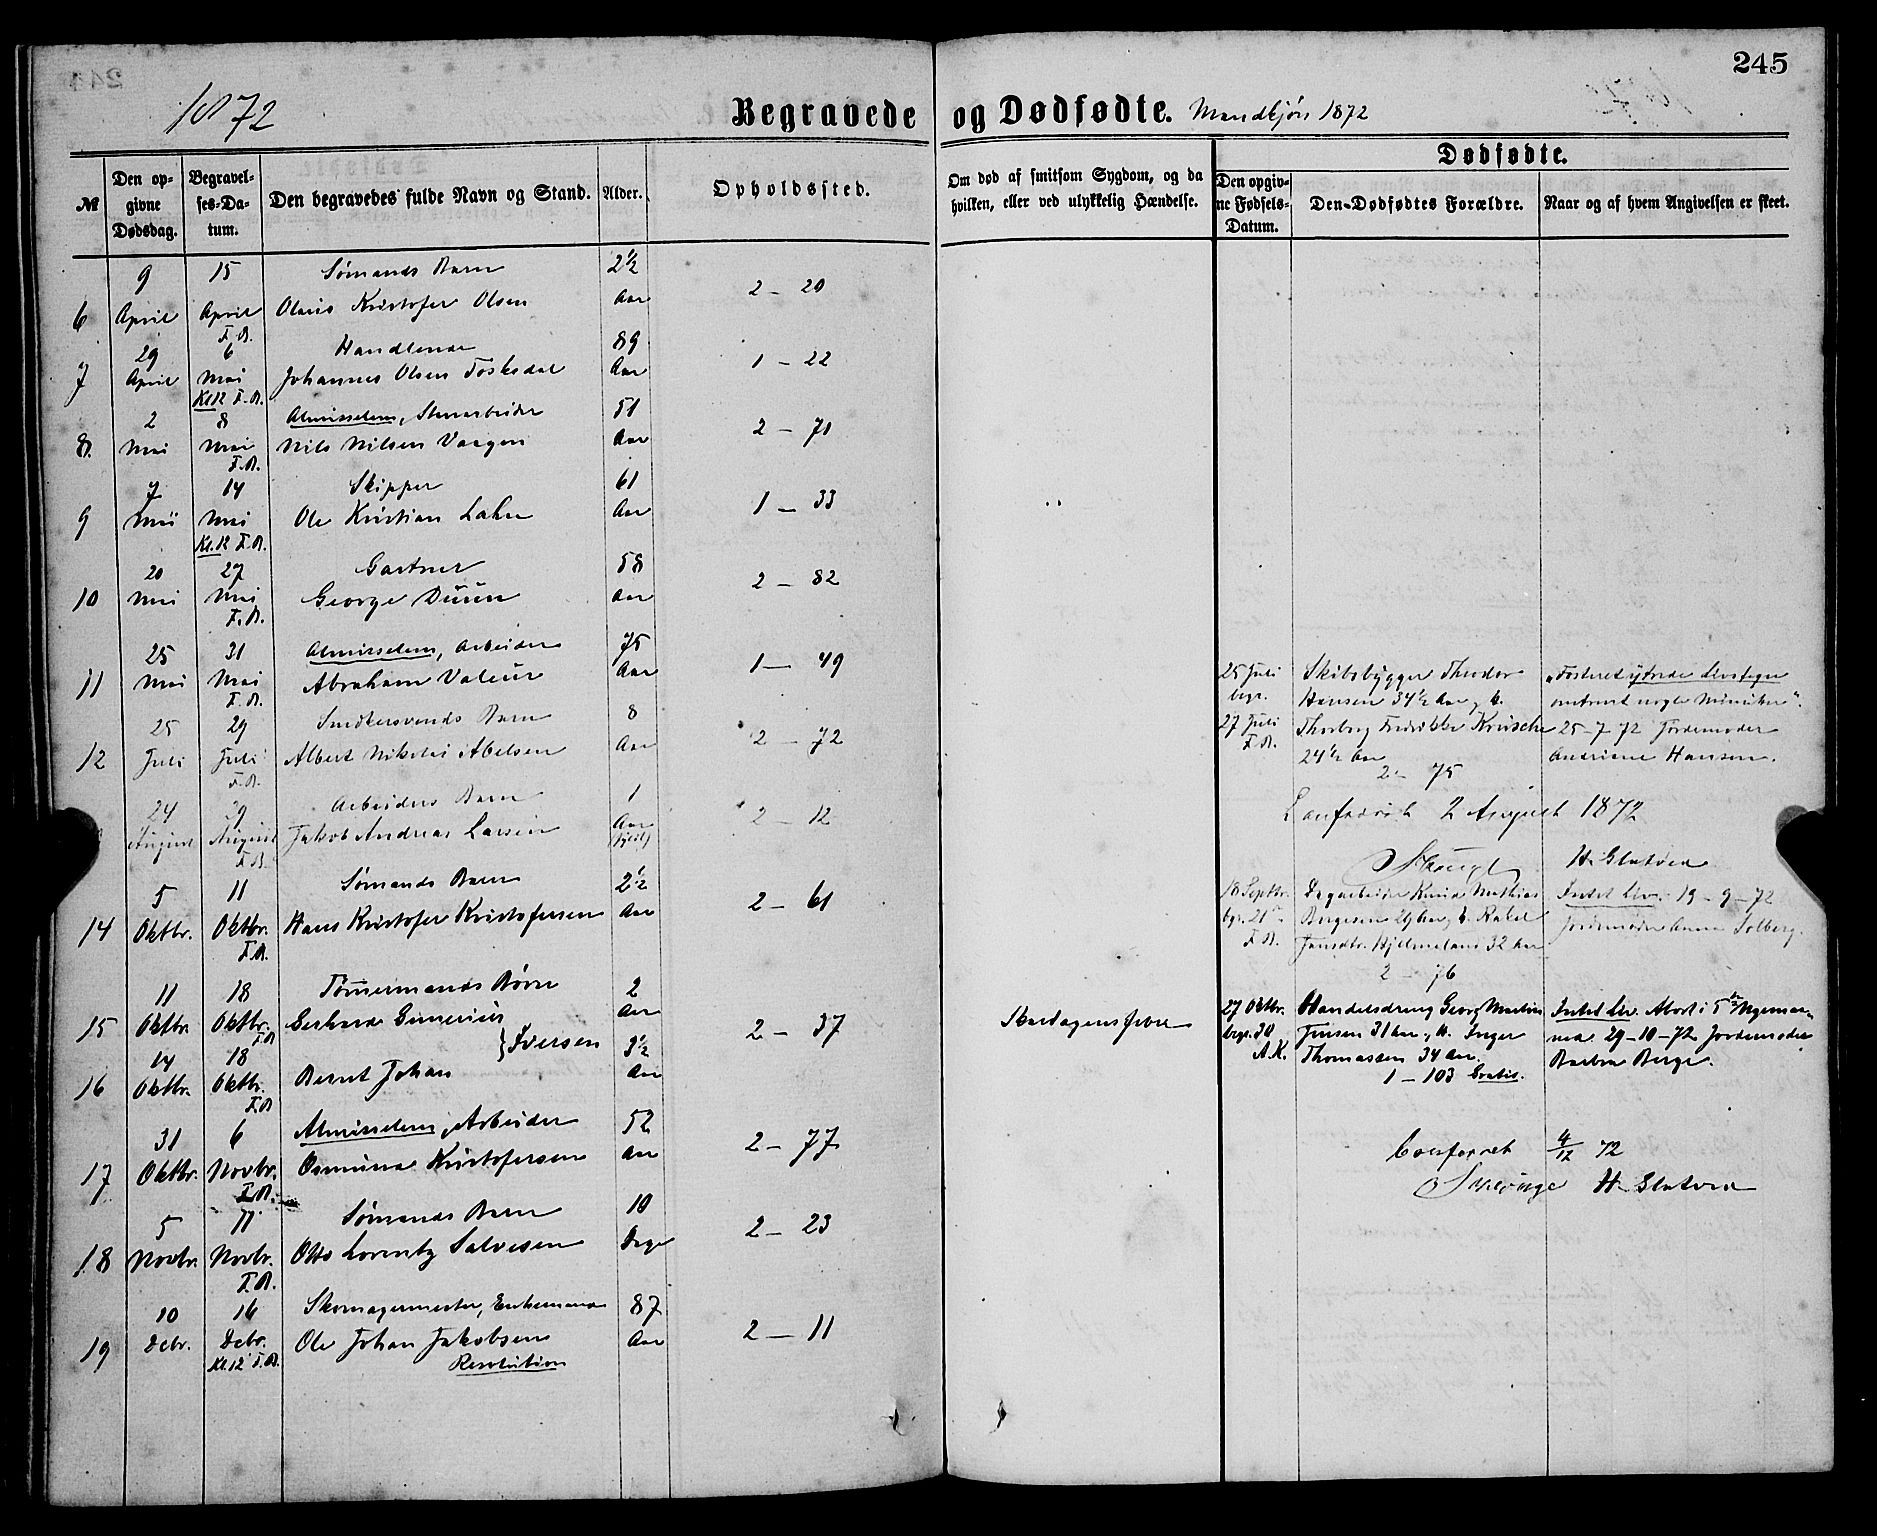 245
1872
Begravede og Dødfødte. Mandkjøn 1872
№
Den opgivne Dødsdag.
Begravelses-Datum.
Den begravedes fulde Navn og Stand.
Alder.
Opholdssted.
Om død af smitsom Sygdom, og da hvilken, eller ved ulykkelig Hændelse.
Dødfødte.
Den opgivne Fødsels-Datum.
Den Dødfødtes Forældre.
Naar og af hvem Angivelsen er skeet.
9 15 Sømands Barn 2½
6 April April Olaus Kristofer Olsen Aar 2 - 20
F. B.
29 6 Handlende 89
7 April Mai Johannes Olsen Toskedal Aar 1 - 22
Kl. 12 F. B.
2 8 Almisselem, Stenarbeider 51
8. Mai Mai Nils Nilsen Vaagen Aar 2 - 71
F. B.
7 14 Skipper 61
9 Mai Mai Ole Kristian Aar 1 - 33
Kl. 12 F. B.
20 27 Gartner 58
10 Mai Mai George Aar 2 - 82
F. B.
25 31 Almisselem, Arbeider 75
11 Mai Mai Abraham Valeur Aar 1 - 49
F. B.
25 29 Snedkersvends Barn 8
12 Juli Juli Albert Nikolai Abelsen Aar 2 - 72
F. B.
24 29 Arbeiders Barn 1
August August Jakob Andreas Larsen Aar 2 - 12
F. B.
5 11 Sømands Barn 2½
14 Oktbr. Oktbr. Hans Kristofer Kristofersen Aar 2 - 61
F. B.
11 18 Tømmermands Børn 2
15 Oktbr. Oktbr. Gerhard Aar
F. B. } Iversen 2 - 37
14 18 3½
16 Oktbr. Oktbr. Bernt Johan Aar
F. B.
31 6 Almisselem, Arbeider 52
17 Oktbr. Novbr. Osmund Kristofersen Aar 2 - 77
F. B.
5 11 Sømands Barn 10
18 Novbr. Novbr. Otto Lorentz Salvesen Dage 2 - 23
F. B.
10 16 Skomagermester, Enkemand 87
19 Debr. Debr. Ole Johan Jakobsen Aar 2 - 11
Kl. 12 F. B. Resolution
Skarlagensfeber
25 Juli Skibsbygger Theodor
begr. Hansen 34½ Aar,
27 Juli Thorborg Fredrikke
F. B. 24½ Aar
2 - 75
"Fosteret ytrede Livstegn
omtrent nogle Minuter".
25-7 72 Jordemoder
Andriane Hansen.
Confereret 2 August 1872
H. Slatved
18 Septbr. Dagarbeider Knud Mathias
bgr. 21de Bergesen 29 Aar, Rakel
F. B. Hjelmeland 32 Aar
2 - 76
Intet Liv. 19-9-72
Jordemoder Anna Solberg.
27 Oktbr. Handelsdreng Georg Martin
begr. 30 Jensen 31 Aar, Inger
A.K. Thomassen 34 Aar.
1 - 103 Gratis.
Intet Liv. Abort i 5te
29-10-72 Jordemoder
Barbra Berge.
Confereret 4/12 72
H. Slatved